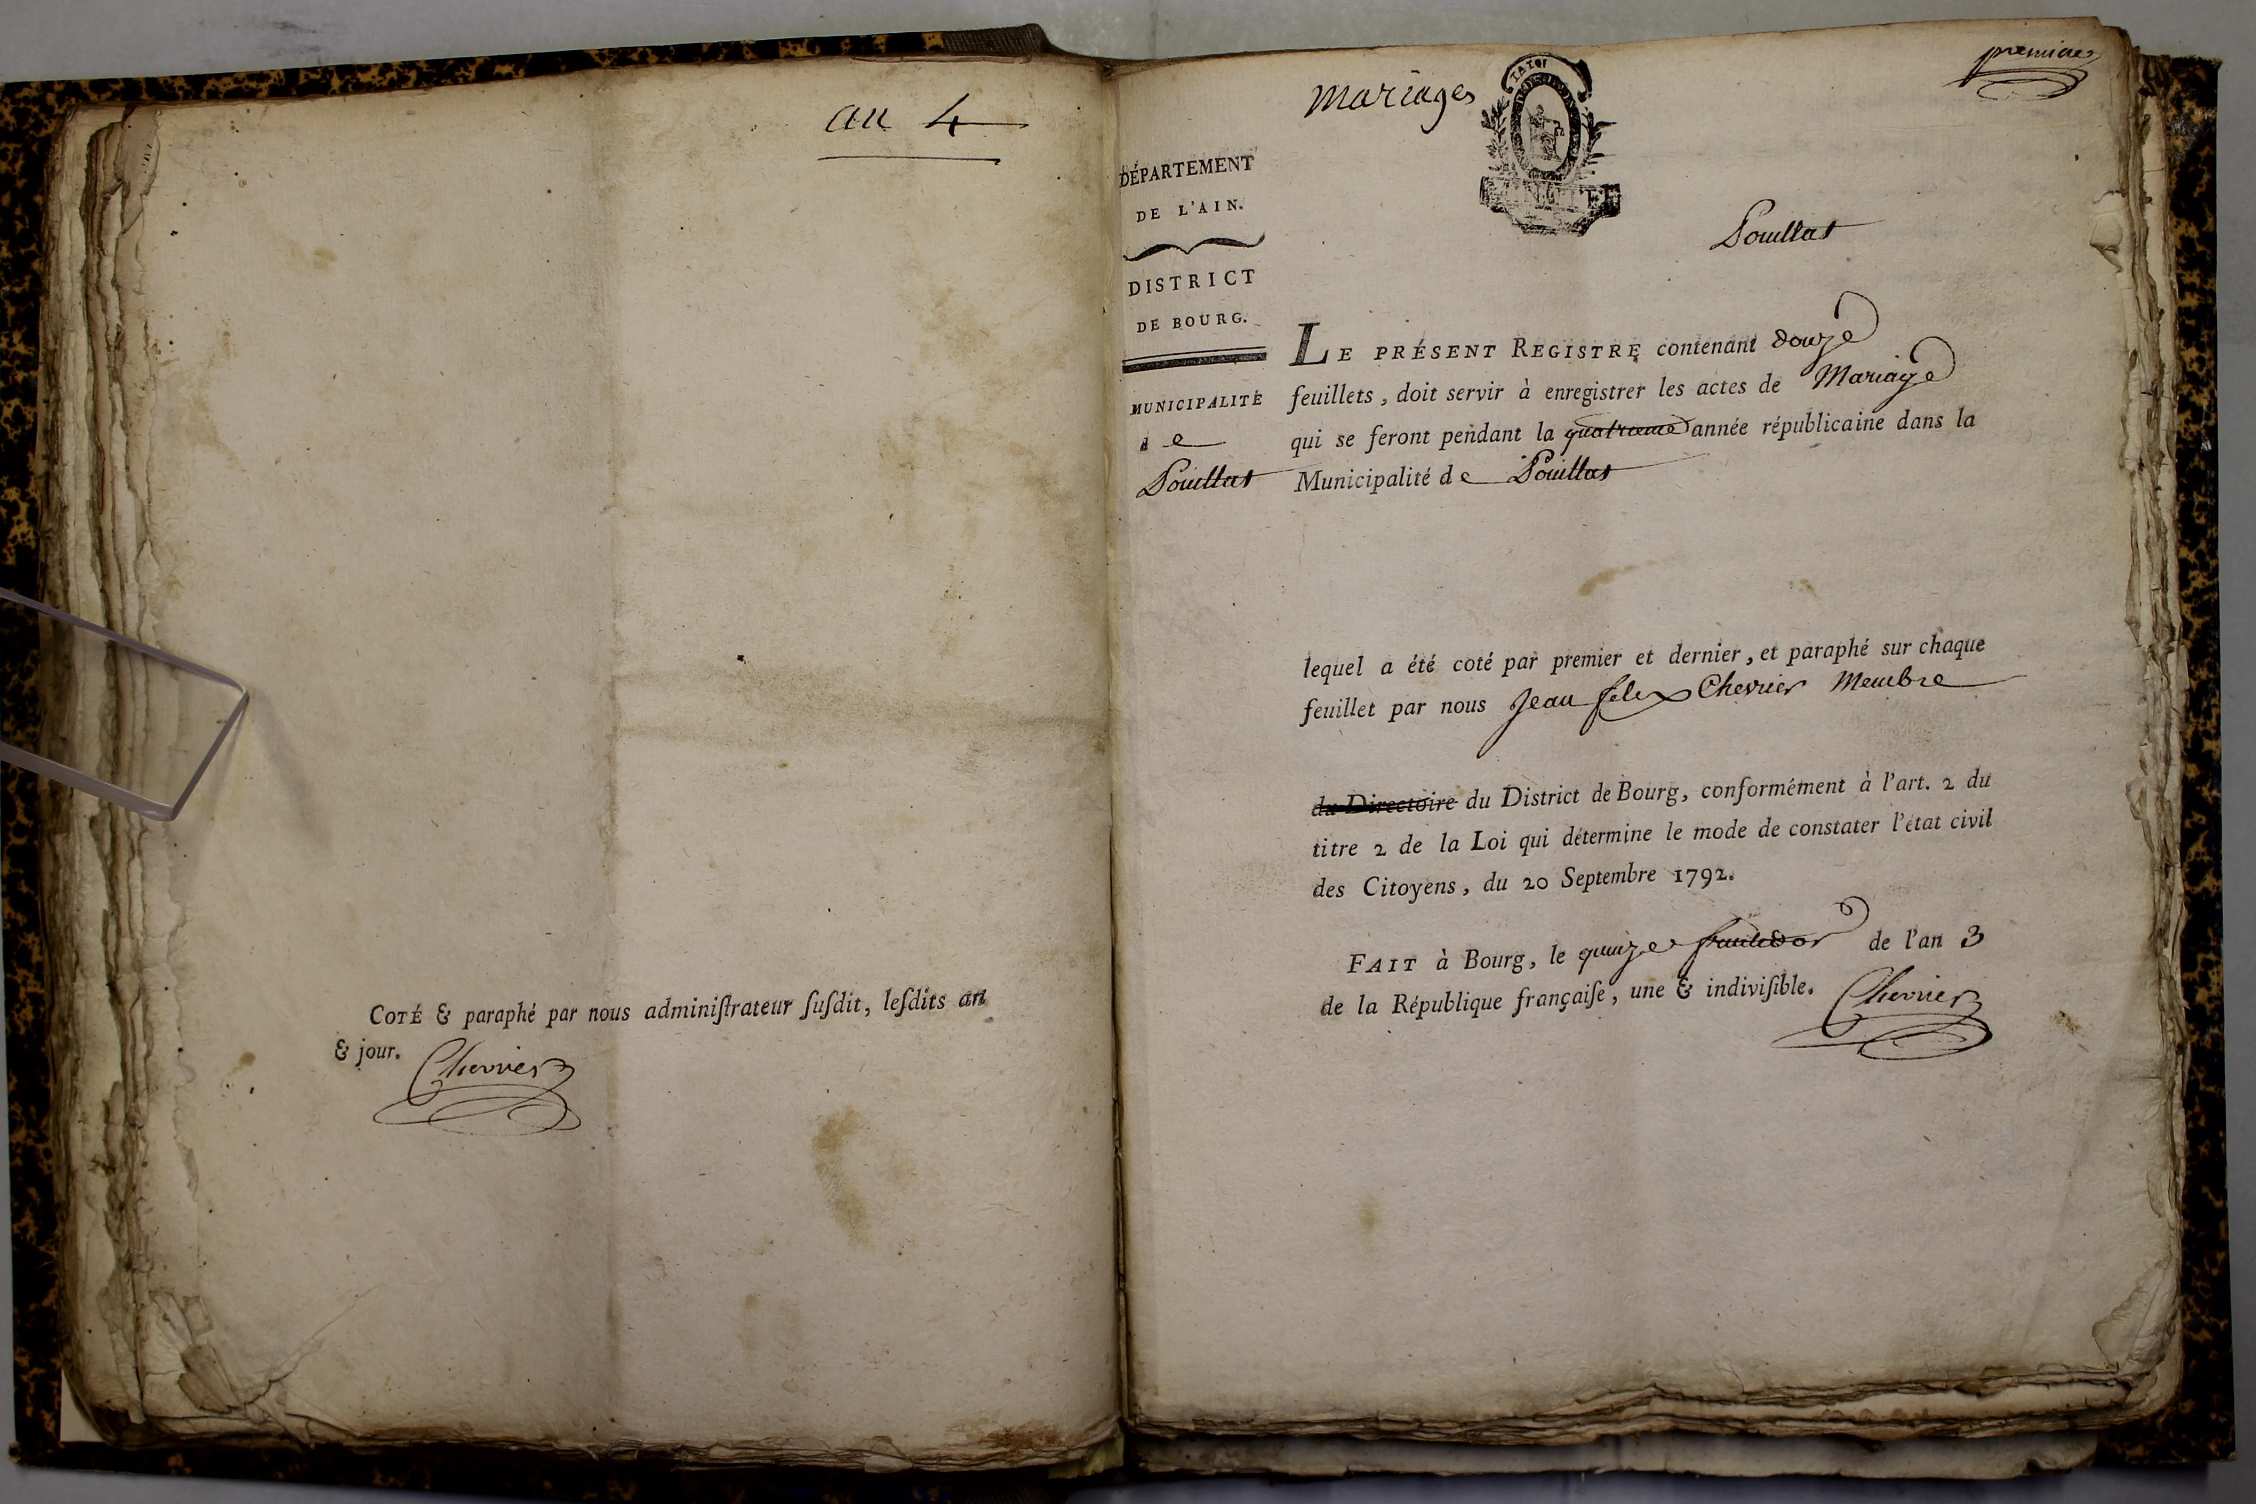 an 4
COTÉ & paraphé par nous adminiſtrateur ſuſdit, leſdits an
& jour.
Chevrier
premier
mariages
DÉPARTEMENT
DE L'AIN.
DISTRICT
DE BOURG.
MUNICIPALITÉ
de
Pouillat
Pouillat
LE PRÉSENT REGISTRE contenant douze
feuillets, doit servir à enregistrer les actes de Mariage
qui se feront pendant la quatrieme année républicaine dans la
Municipalité de Pouillat
lequel a été coté par premier et dernier, et paraphé sur chaque
feuillet par nous Jean felix Chevrier Membre
du Directoire du District de Bourg, conformément à l'art. 2 du
titre 2 de la Loi qui détermine le mode de constater l'état civil
des Citoyens, du 20 Septembre 1792.
FAIT à Bourg, le quinze fructidor de l'an 3
de la République françaiſe, une & indiviſible.
Chevrier